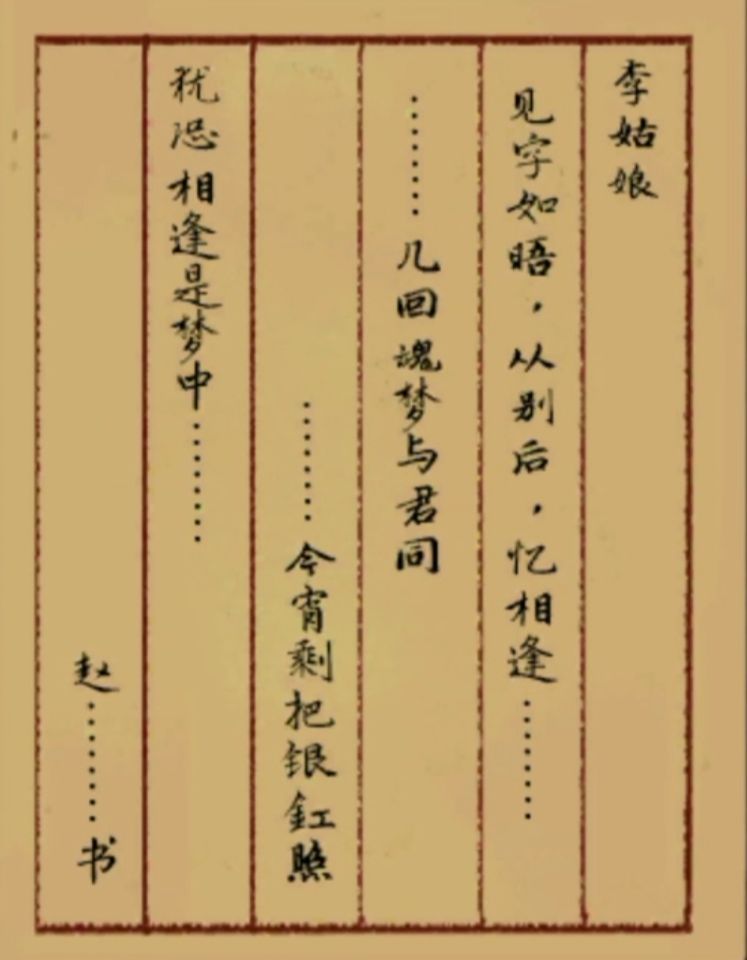 李姑娘
见字如晤，从别后，忆相逢………
………几回魂梦与君同
………今宵剩把银釭照
犹恐相逢是梦中………
赵………书